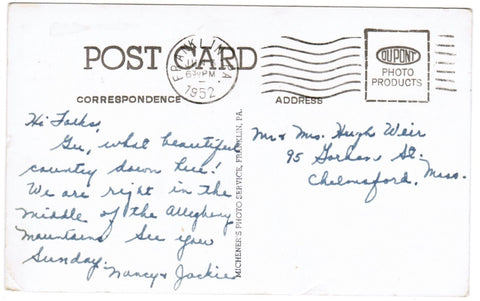 POST CARD
FRANKLIN, PA.
6 PM
1952
DUPONT
PHOTO
PRODUCTS
CORRESPONDENCE
ADDRESS
Hi Folks,
Gee, what beautiful
country down here!
We are right in the
middle of the Allegheny
Mountains See you
Sunday.
Nancy & Jackie
MICHENER'S PHOTO SERVICE, FRANKLIN, PA.
Mr & Mrs. Hugh Weir
95 Gorham St.
Chelmsford, Mass.